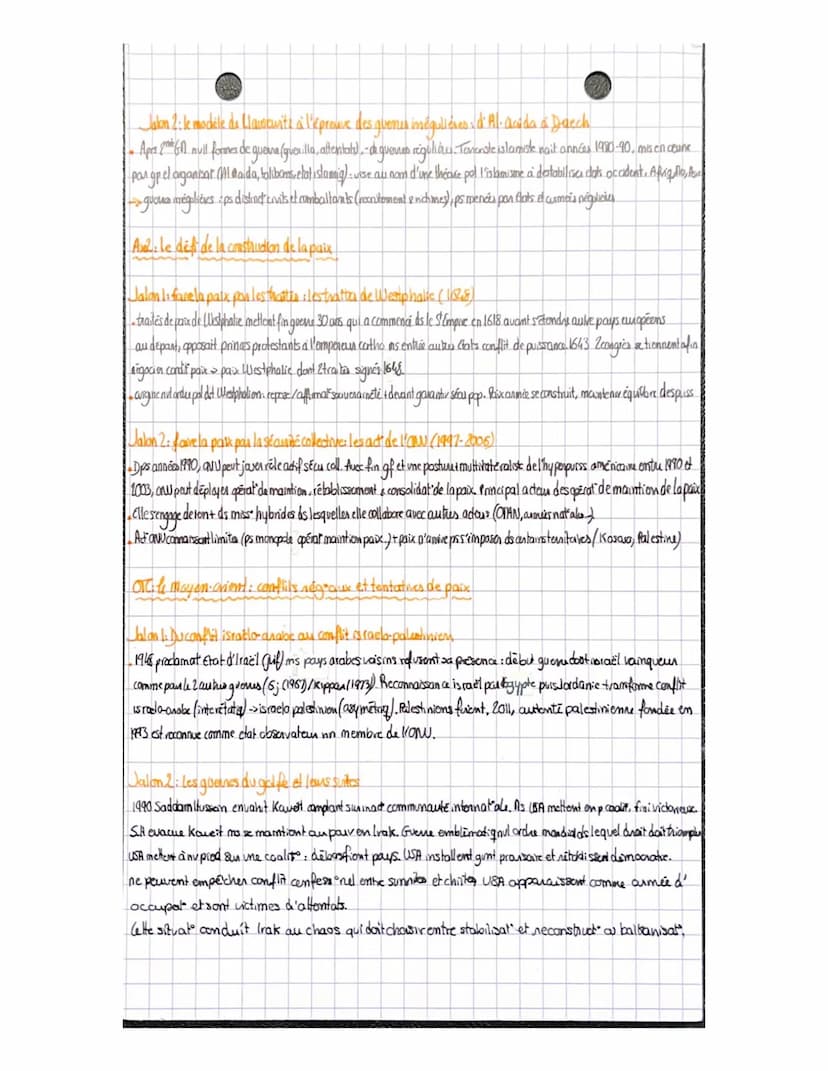 Jalon 2: le modèle de Clausewitz à l'épreuve des guerres irrégulières: d'Al-Qaida à Daech
• Après 2nde GM nvll formes de guerre (guerilla, attentats), - de guerres régulières. Terroriste islamiste nait années 1980-90, mis en œuvre
par gp et organisat° (Al Qaida, talibans, etat islamiq): vise au nom d'une théorie pol l'islamisme à destabiliser etats occident, Afriq No, Asie
→ guerres irrégulières: ps distinct° civils et combattants (recrutement enchines), ps menées par États et armées régulières
Axe 2: le défi de la construction de la paix
Jalon 1: faire la paix par les traités: les traités de Westphalie (1648)
• traités de paix de Westphalie mettent fin guerre 30 ans qui a commencé ds le St Empire en 1618 avant s'étendre autre pays européens
au départ, opposait princes protestants à l'empereur catho ms entrée autres États conflit de puissance. 1643 2 congrès se tiennent afin
négocier condit° paix → paix Westphalie dont 2 traités signés 1648.
• origine nvl ordre pol dit Westphalien: repose / affirmat° souveraineté + devant garantir sécu pop. Paix armée se construit, maintenir équilibre des puiss
Jalon 2: faire la paix par la sécurité collective: les act° de l'ONU (1997-2006)
• Dps années 1990, ONU peut jouer rôle actif sécu coll. Avec fin gf et une posture + multilatéraliste de l'hyperpuiss américaine entre 1990 et
2003, ONU peut déployer opérat° de maintien, rétablissement & consolidat° de la paix. Principal acteur des opérat° de maintien de la paix
• elle s'engage de tout + ds miss° hybrides ds lesquelles elle collabore avec autres acteurs (OTAN, armées natales..)
• Act° ONU connaissent limites (ps monopole opérat° maintien paix..) + paix n'arrive ps s'imposer ds certains territoires / (Kosovo, Palestine)
OTC: le Moyen-orient: conflits régionaux et tentatives de paix
Jalon 1: Du conflit israélo-arabe au conflit israelo-palestinien
• 1948 proclamat° Etat d'Israël (juif) ms pays arabes voisins refusent sa présence: début guerre dont israël vainqueur
comme pour le 2 autres guerres (6j (1967) / Kippour (1973)). Reconnaissance israël par Egypte puis Jordanie transforme conflit
israelo-arabe (interétatiq) → israelo palestinien (asymétriq). Palestiniens fuient. 2011, autorité palestinienne fondée en
1993 est reconnue comme état observateur nn membre de l'ONU.
Jalon 2: Les guerres du golfe et leurs suites
1990 Saddam Hussein envahit Koweït comptant sur inact° communauté internat°ale. Ms USA mettent en p coalit°, fini victorieuse.
S.H evacue Koweit ms se maintient au pouv en Irak. Guerre emblématiq nvl ordre mondial ds lequel droit doit triompher
USA mettent à nv pied sur une coalit°: débarq font pays. USA installent gvnt provisoire et rétablissent démocratie.
ne peuvent empêcher conflit confess°nel entre sunnites et chiites. USA apparaissent comme armée d'
occupat° et sont victimes d'attentats.
Cette situat° conduit Irak au chaos qui doit choisir entre stabilisat° et reconstruct° ou balkanisat°.